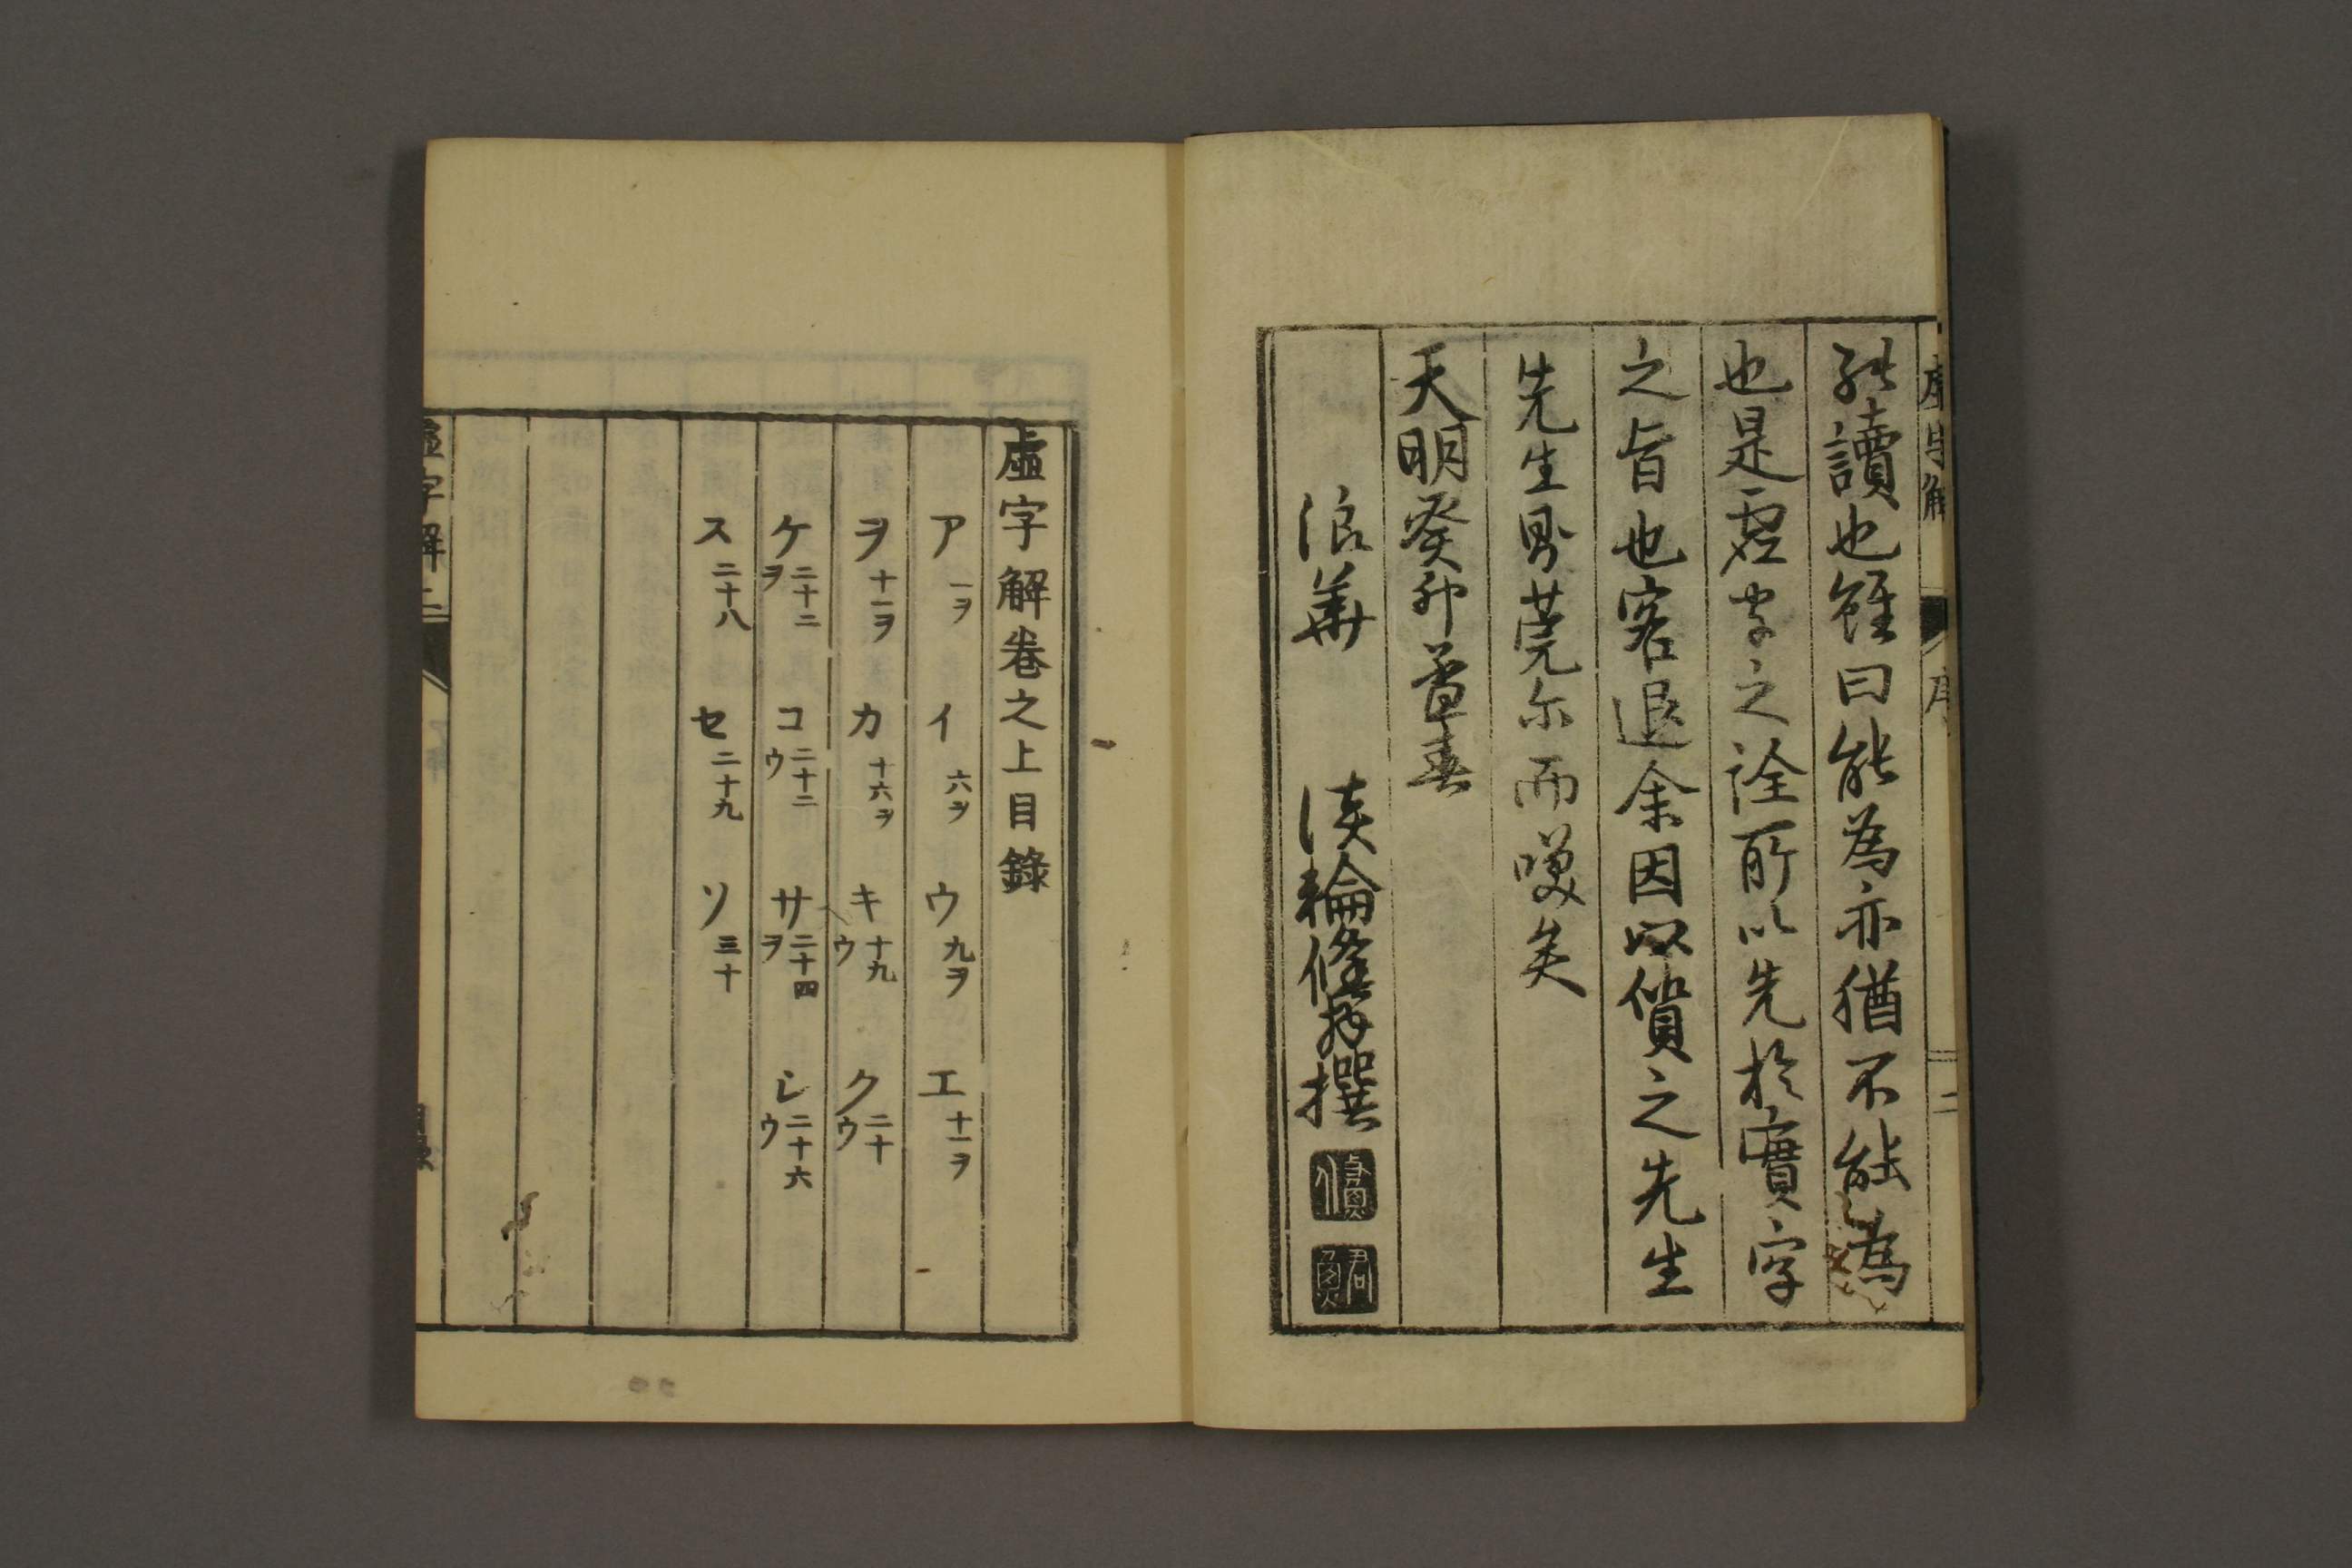 能讀也雖曰能為亦猶不能為
也是虛字之詮所以先於實字
之旨也客退余因以償之先生
先生見莞尓而嘆矣
天明癸卯首春
浪華 淡輪修撰
虛字解卷之上目錄
ア 一ヲ イ 六ヲ ウ 九ヲ エ 十一ヲ
ヲ 十一ヲ カ 十六ヲ キ 十九ウ ク 二十ウ
ケ 二十二ヲ コ 二十二ウ サ 二十四ヲ シ 二十六ウ
ス 二十八 セ 二十九 ソ 三十
虛字解